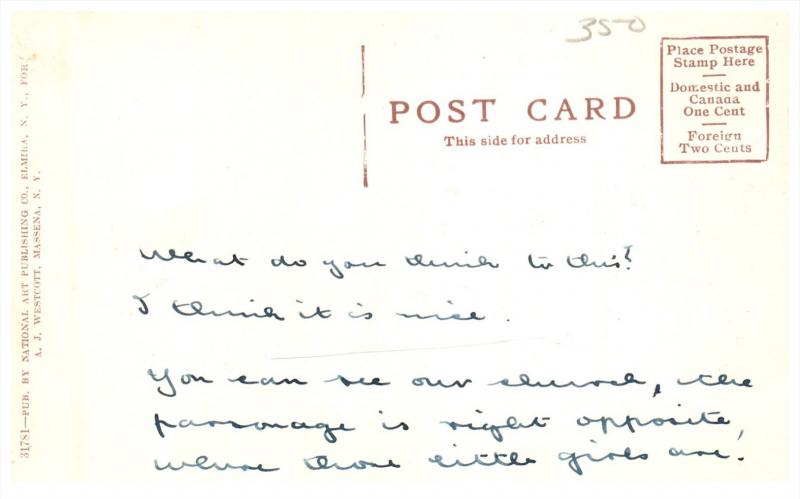 350
Place Postage
Stamp Here
Domestic and
Canada
One Cent
Foreign
Two Cents
POST CARD
This side for address
31781—PUB. BY NATIONAL ART PUBLISHING CO., ELMIRA, N. Y., FOR
A. J. WESTCOTT, MASSENA, N. Y.
What do you think to this?
I think it is nice.
You can see our church, the
parsonage is right opposite,
where those little girls are.